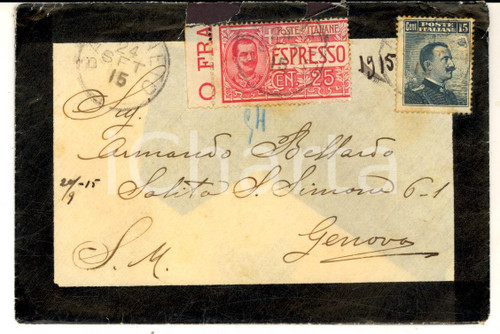 24
SET
15
O FRA
POSTE ITALIANE
ESPRESSO
CENT 25
1915
Cent 15
POSTE
ITALIANE
Sig.
Armando Bellardo
24/9 -15
Salita S. Simone 6-1
S. M.
Genova
Charta